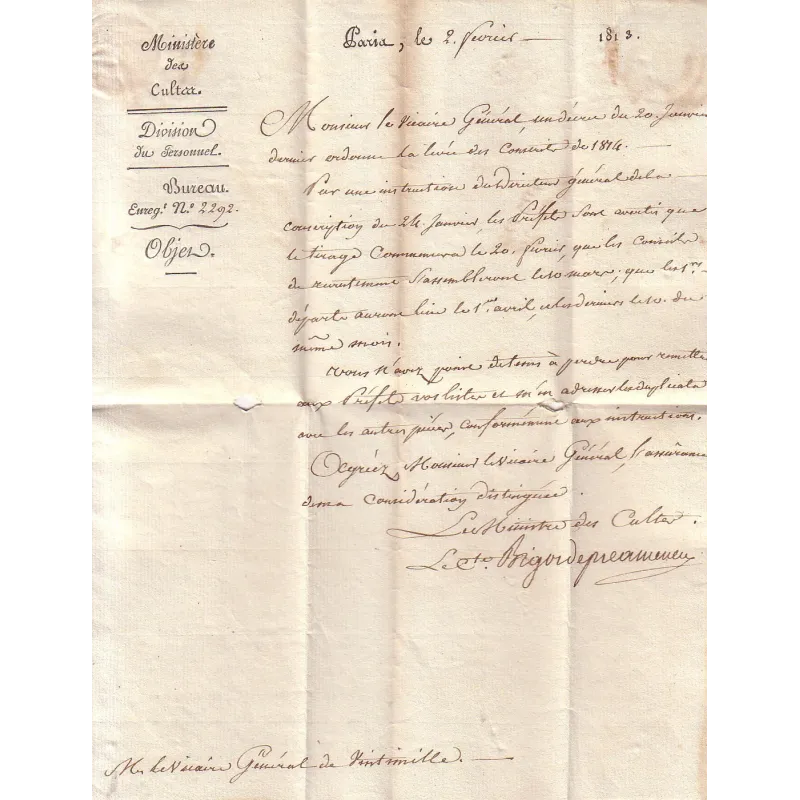 Ministère
des
Cultes.
Division
du Personnel.
Bureau.
Enreg.t N.o 2292.
Objet.
Paris, le 2. février 1813.
Monsieur le Vicaire Général, un décret du 20. Janvier
dernier ordonne la levée des Conscrits de 1814.
Par une instruction du Directeur général de la
conscription du 24. Janvier, les Préfets sont avertis que
le tirage commencera le 20. février, que les conseils
de recrutement s'assembleront le 10 mars; que les 1.ers
départs auront lieu le 1.er avril, et les derniers le 10. du
même mois.
Vous n'avez point de tems à perdre pour remettre
aux Préfets vos listes et m'en adresser les duplicata
avec les autres pièces, conformément aux instructions.
Agréez, Monsieur le Vicaire Général, l'assurance
de ma considération distinguée.
Le Ministre des Cultes.
Le C.te Bigot de préameneu
M. le Vicaire Général de Vintimille.